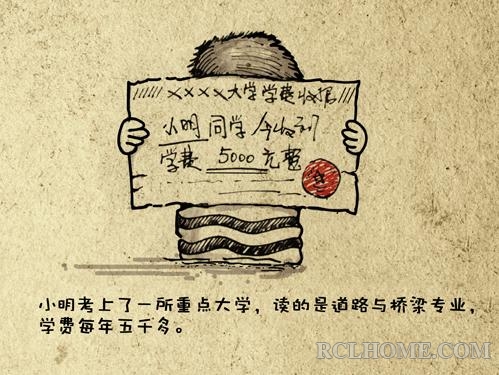 ××××大学学费收据
小明同学今收到
学费 5000 元整
小明考上了一所重点大学，读的是道路与桥梁专业，
学费每年五千多。
RCLHOME.COM